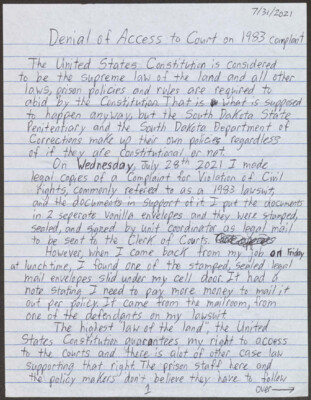 7/31/2021
Denial of Access to Court on 1983 complaint
The United States Constitution is considered
to be the supreme law of the land and all other
laws, prison policies and rules are required to
abid by the Constitution. That is what is supposed
to happen anyway, but the South Dakota State
Penitentiary and the South Dakota Department of
Corrections make up their own policies regardless
of if they are Constitutional or not.
On Wednesday, July 28th, 2021 I made
legal copies of a Complaint for Violation of Civil
Rights, commonly refered to as a 1983 lawsuit,
and the documents in support of it. I put the documents
in 2 seperate Vanilla envelopes and they were stamped,
sealed, and signed by unit coordinator as legal mail
to be sent to the Clerk of Courts.
However, when I came back from my job on Friday
at lunchtime, I found one of the stamped, sealed legal
mail envelopes slid under my cell door. It had a
note stating I need to pay more money to mail it
out per policy. It came from the mailroom, from
one of the defendants on my lawsuit.
"The highest law of the land", the United
States Constitution guarantees my right to access
to the courts and there is alot of other case law
supporting that right. The prison staff here and
the policy makers don't believe they have to follow
over→
1